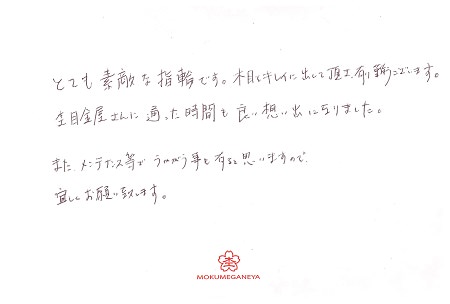 とても素敵な指輪です。木目もキレイに出して頂き、有り難うございます。
杢目金屋さんに通った時間も良い想い出になりました。
また、メンテナンス等でうかがう事も有ると思いますので、
宜しくお願い致します。
MOKUMEGANEYA